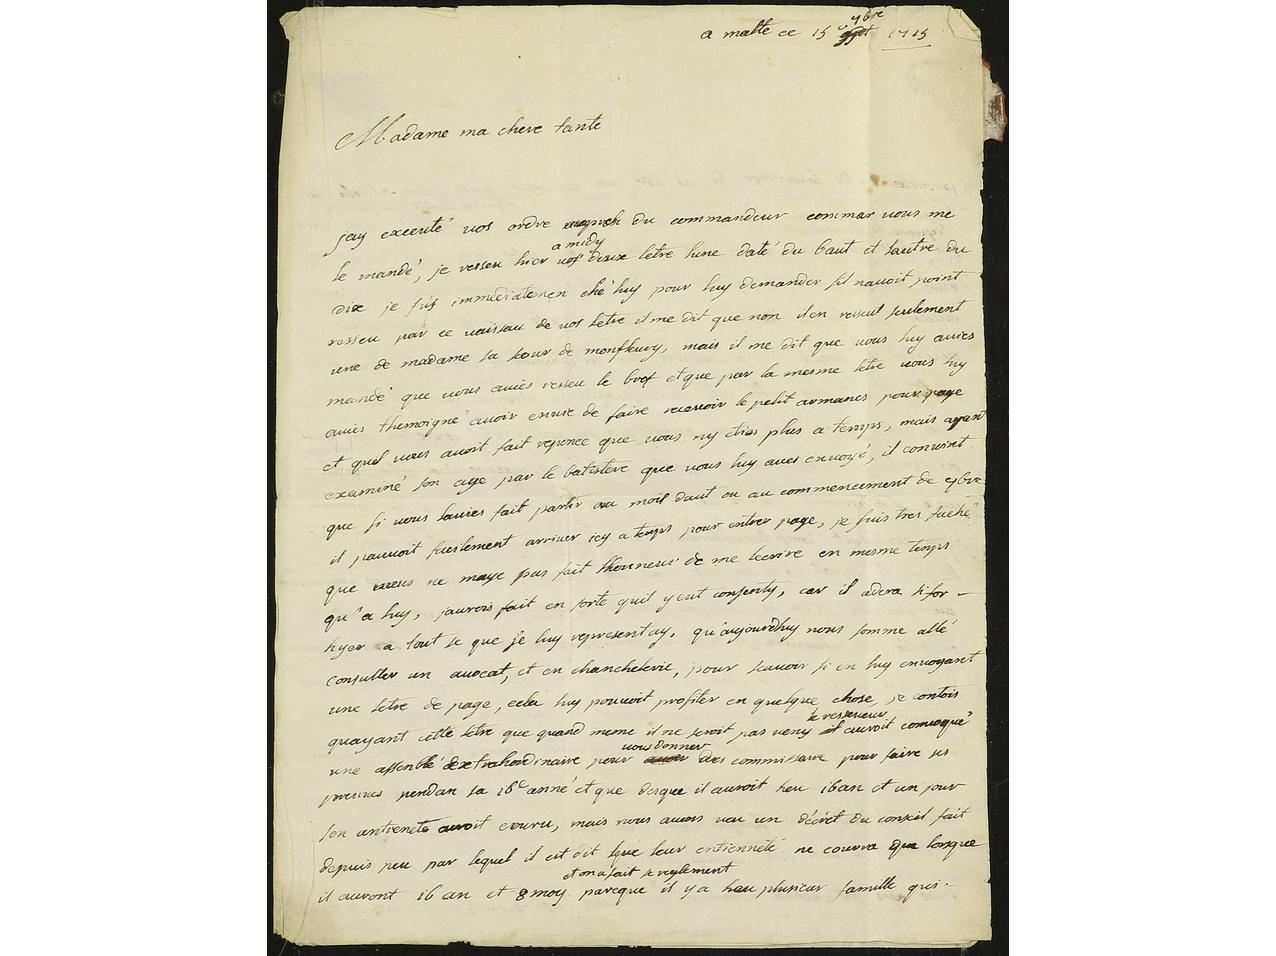 a malte ce 15e 7bre 1715
Madame ma chere tante
jay executé vos ordre du commandeur commar vous me
a midy
le mandé, je resseu hier vos deux letre lune daté du baut et lautre du
dix je fus immediatemen ché luy pour luy demander sil navoit point
resseu par ce vaissau de vos letre il me dit que non il en resseut seulement
une de madame la sour de monfleury, mais il me dit que vous luy aviés
mandé que vous aviés resseu le bref et que par la mesme letre vous luy
aviés themoigné avoir envie de faire recevoir le petit armanes pour page
et quil vous avoit fait reponce que vous ny eties plus a temps, mais ayant
examiné son age par le batistere que vous luy aves envoyé, il convint
que si vous lavies fait partir au mois daut ou au commencement de 7bre
il pouvoit facilement arriver icy a temps pour entrer page, je suis tres faché
que vous ne maye pas fait lhonneur de me lecrire en mesme temps
qu'a luy, jaurois fait en sorte quil y eut consenty, car il adera
a tout se que je luy representay, qu'aujourdhuy nous somme allé
consulter un avocat, et en chanchelerie, pour scavoir si en luy envoyant
une letre de page, cela luy pouvoit profiter en quelque chose, je contois
quayant cette letre que quand meme il ne seroit pas veny il auroit convoqué
le resseveur
une assemblé dextrahordinaire pour des commissaire pour faire ses
vous donner
preuves pendan sa 16e anné et que desque il auroit heu 16 an et un jour
son antieneté auroit couru, mais nous avons veu un décret du conseil fait
depuis peu par lequel il est dit que leur entienneté ne courra que lorsque
et on a fait se reglement
il auront 16 an et 8 moy parceque il y a heu plusieur famille qui-